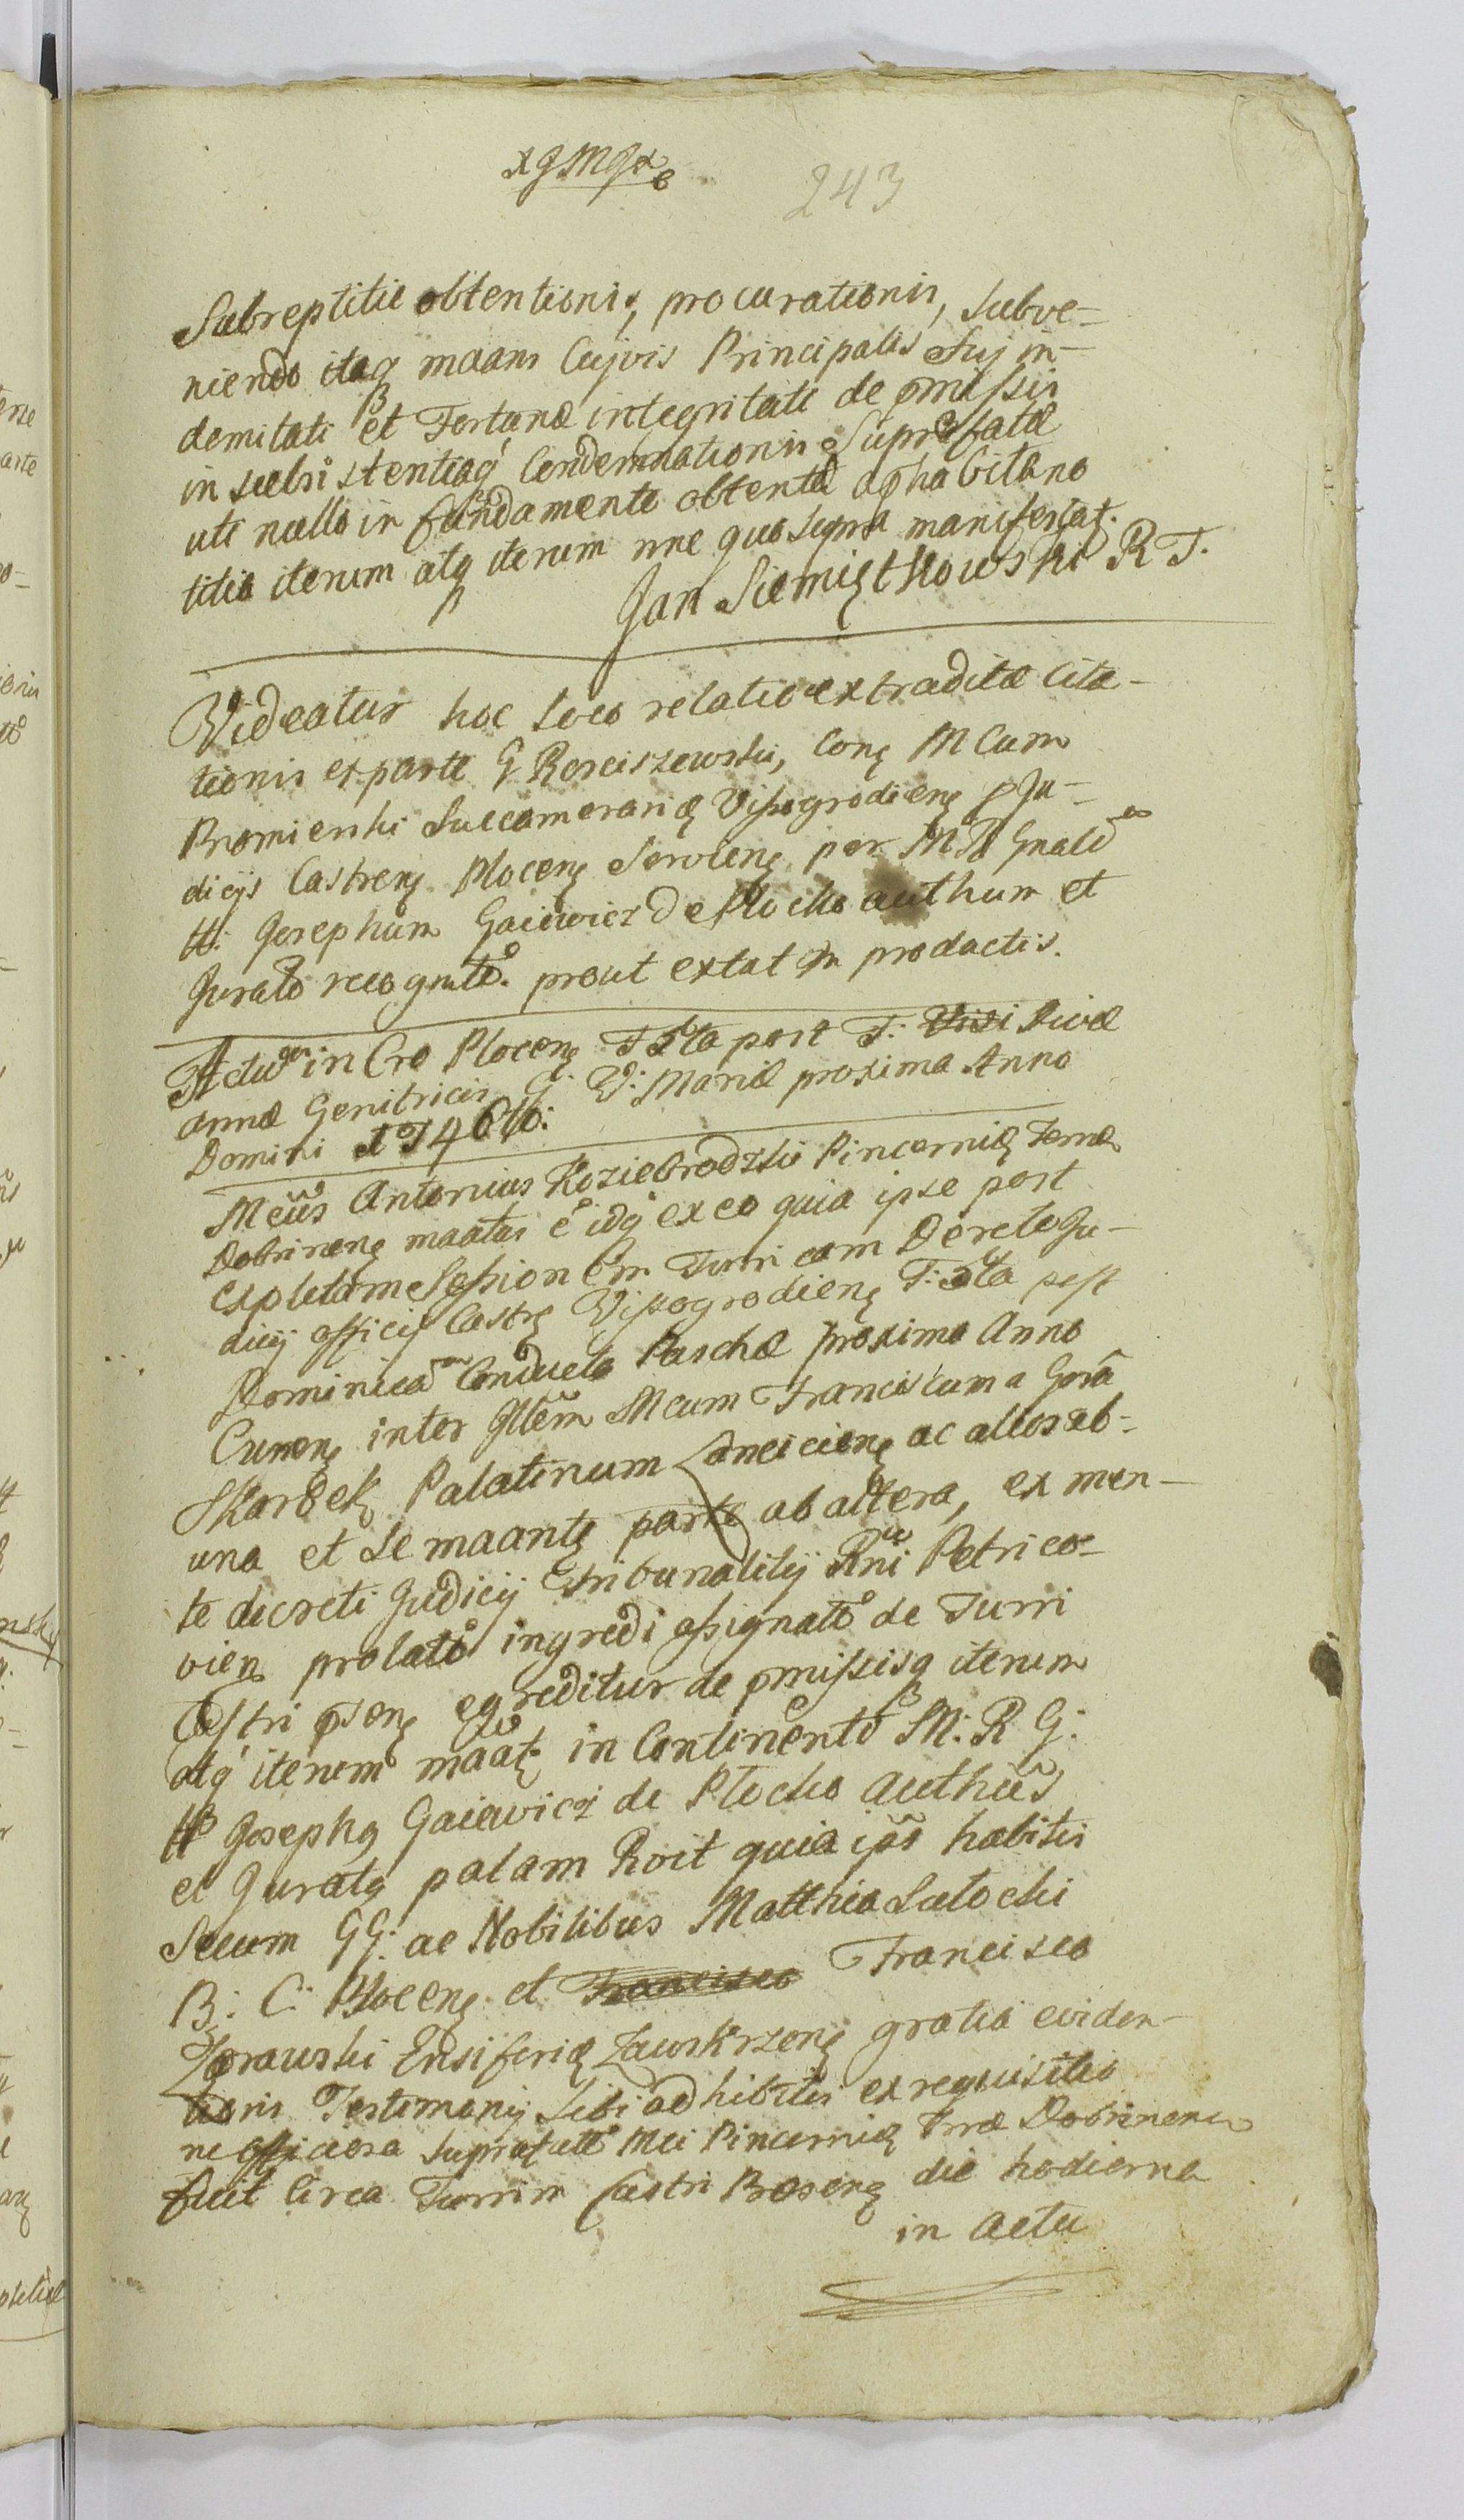 243
Subreptitie obtentionis, procurationis, Subve=
niendo itaq maans Cujvis Principalis Suj in=
demitati et Fortunæ integritate de pmissis
in subsistentiaq Condemnationis Supræfatæ
uti nullo in fundamento obtentæ
titio iterum atq iterum nne quo supra manifestat.
Jan Siemiętkowski R T.
Videatur hoc loco relatio extraditæ Cita-
tionis ex parte G Rosciszewski, Conę M Cum
Promienski Succamerarią Vissogrodienę p Ju=
dicijs Castrenę Plocenę Servienę per M R Gnalē
H: Josephum Gaiewicz de Plocko authum et
Jurato recognitō. prout extat in productis.
Actum in Cro Plocenę F 5ta post F: Divæ
Annæ Genitricis G: V: Mariæ proxima Anno
Domini 1746to:
Mcus Antonius Koziebrodzki Pincernią Terræ
Dobrinenę maatus ē idq ex eo quia ipse post
expletam Sessionem Turri eam Decreto Ju-
dicij officij Castrę Vissogrodienę F: 5ta post
Dominicam Conductō Paschæ proxima Anno
Currenę inter Illem Mcum Franciscum a Gora
Skarbek Palatinum Lancicienę ac alios ab=
una et Se maantę parte ab altera, ex men-
te decreti Judicij Tribunalitij Rni Petrico=
vienę prolatō ingredi assignatō de Turri
Castri psenę egreditur de pmissisq iterum
atq iterum maat. in Continentō M: R G:
H Josephq Gaiewicz de Plocko authus
et Juratq palam Roit quia ipso habitis
Secum GG: ac Nobilibus Matthia Lutocki
B: C: Plocenę et Francisco Francisco
Zorawski Ensiferią Zawskrzenę gratia eviden-
tioris Testimonij Sibi adhibitis ex requisitio
ne officiosa Suprafatē Mci Pincernią Terræ Dobrinenę
fuit Circa Turrim Castri Præsenę die hodierna
in actu